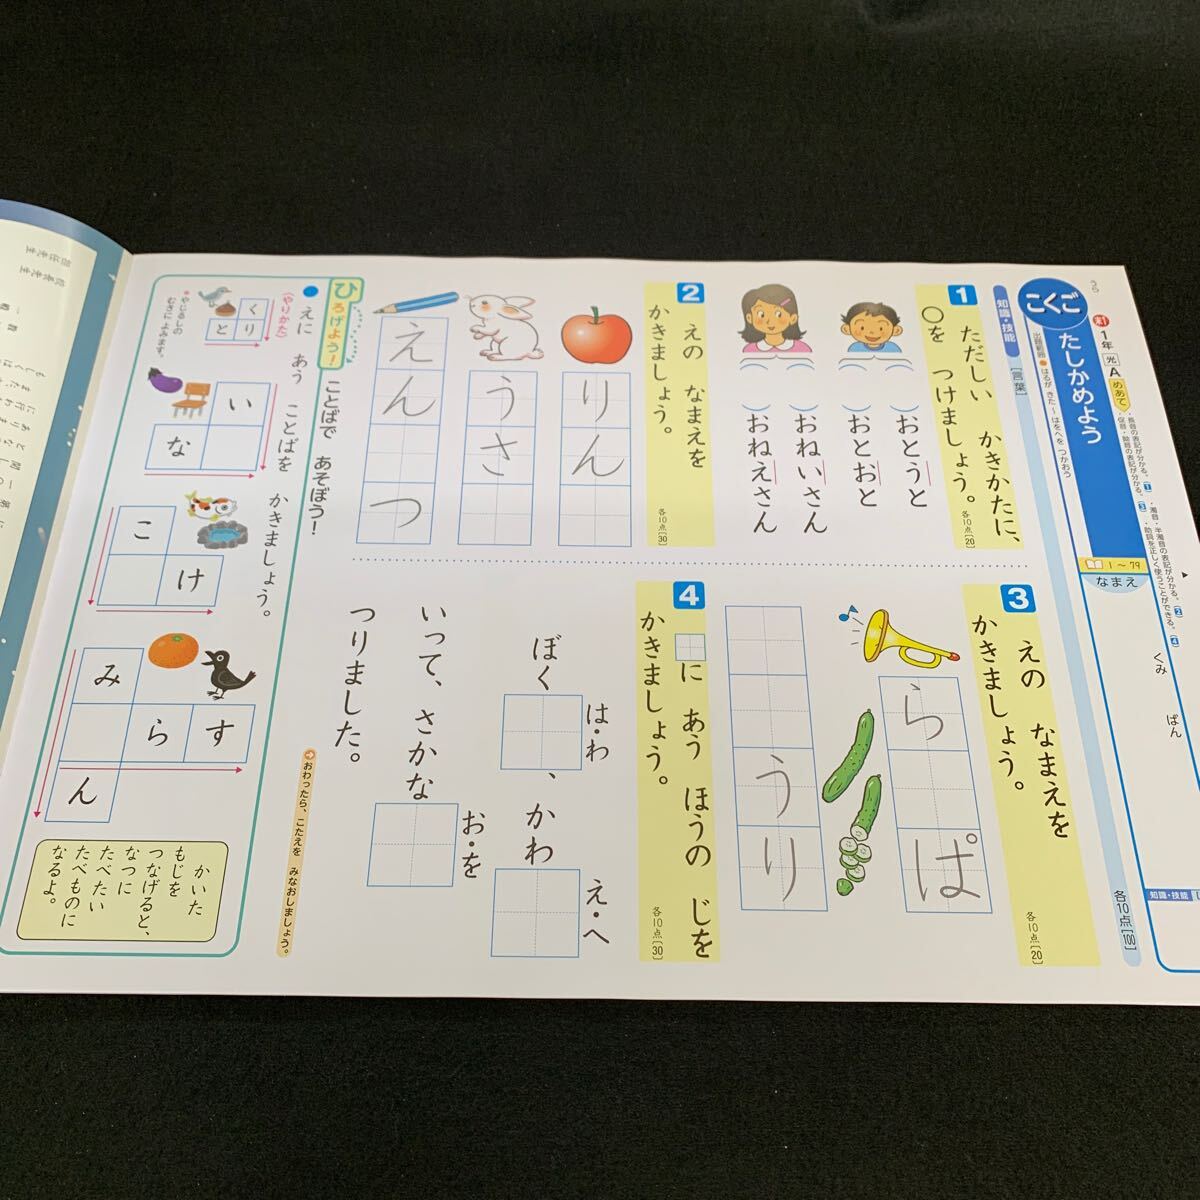 こくご
たしかめよう
1年
光
A
めあて
・長音の表記が分かる。 1
・促音・拗音の表記が分かる。 3
・濁音・半濁音の表記が分かる。 2
・助詞を正しく使うことができる。 4
1〜79
なまえ
くみ
ばん
出題範囲 ● はるが きた〜はをへを つかおう
知識・技能
各10点[100]
知識・技能
[言葉]
1
ただしい かきかたに、
○を つけましょう。
各10点[20]
おとうと
おとおと
おねいさん
おねえさん
2
えの なまえを
かきましょう。
各10点[30]
りん
うさ
えんつ
3
えの なまえを
かきましょう。
各10点[20]
らぱ
うり
4
に あう ほうの じを
かきましょう。
各10点[30]
ぼく
は・わ
、かわ
え・へ
いって、さかな
お・を
つりました。
おわったら、こたえを みなおしましょう。
ひろげよう!
ことばで あそぼう!
●えに あう ことばを かきましょう。
〈やりかた〉
く
とり
＊やじるしの
むきに よみます。
い
な
こ
け
み
らす
ん
かいた
もじを
つなげると、
なつに
たべたい
たべものに
なるよ。
校長先生
担任先生